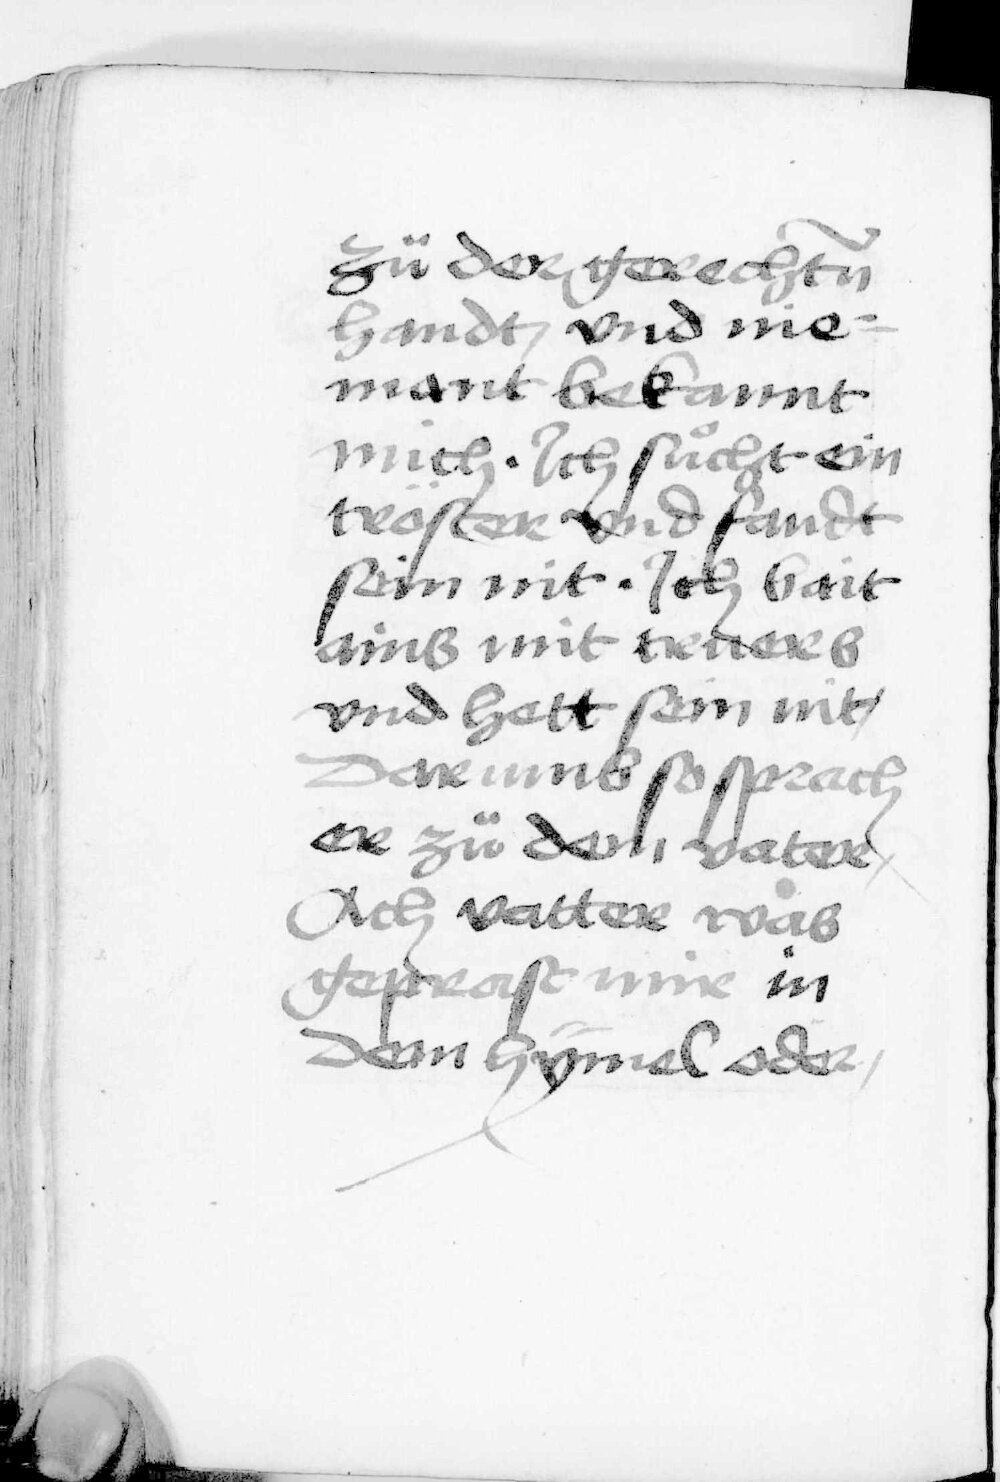 zü der gerechtn̄
handt, vnd nie=
mant bekannt
mich. Ich sůcht ein
tröster vnd fandt
sein nit. Ich bait
ainß mit truers
vnd hett sein nit,
Darumb so sprach
er zü dem vater,
Ach vatter wås
geprast mir in
dem hÿmel oder,